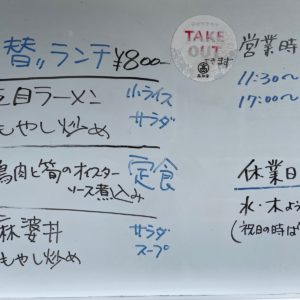 替ランチ ¥800-
TAKE
OUT
できます
営業時
11:30〜
17:00〜
五目ラーメン 小ライス
もやし炒め サラダ
鶏肉と筍のオイスター
ソース煮込み
定食
麻婆丼 サラダ
もやし炒め スープ
休業日
水・木よう
(祝日の時は